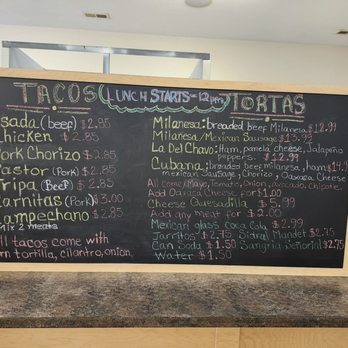 TACOS LUNCH STARTS - 12 pm TORTAS
sada (beef) $2.85
hicken $2.85
ork Chorizo $2.85
astor (Pork) $2.85
ripa (Beef) $2.85
arnitas (Pork) $3.00
ampechano $2.85
mix 2 meats
ll tacos come with
rn tortilla, cilantro, onion.
Milanesa: breaded beef Milanesa $12.99
Milanesa/Mexican Sausage $13.99
La Del Chavo: Ham, panela cheese, Jalapeño
peppers. $12.99
Cubana: breaded beef milanesa, ham $14.9
mexican Sausage, Chorizo, Oaxaca Cheese
All come/Mayo, Tomato, Onion, Avocado, Chipotle
Add Oaxaca Cheese for $1.00
Cheese Quesadilla $5.99
Add any meat for $2.00
Mexican glass coca Cola $2.99
Jarritos $2.75 Sidral Mundet $2.75
Can Soda $1.50 Sangria Señorial $2.75
Water $1.50